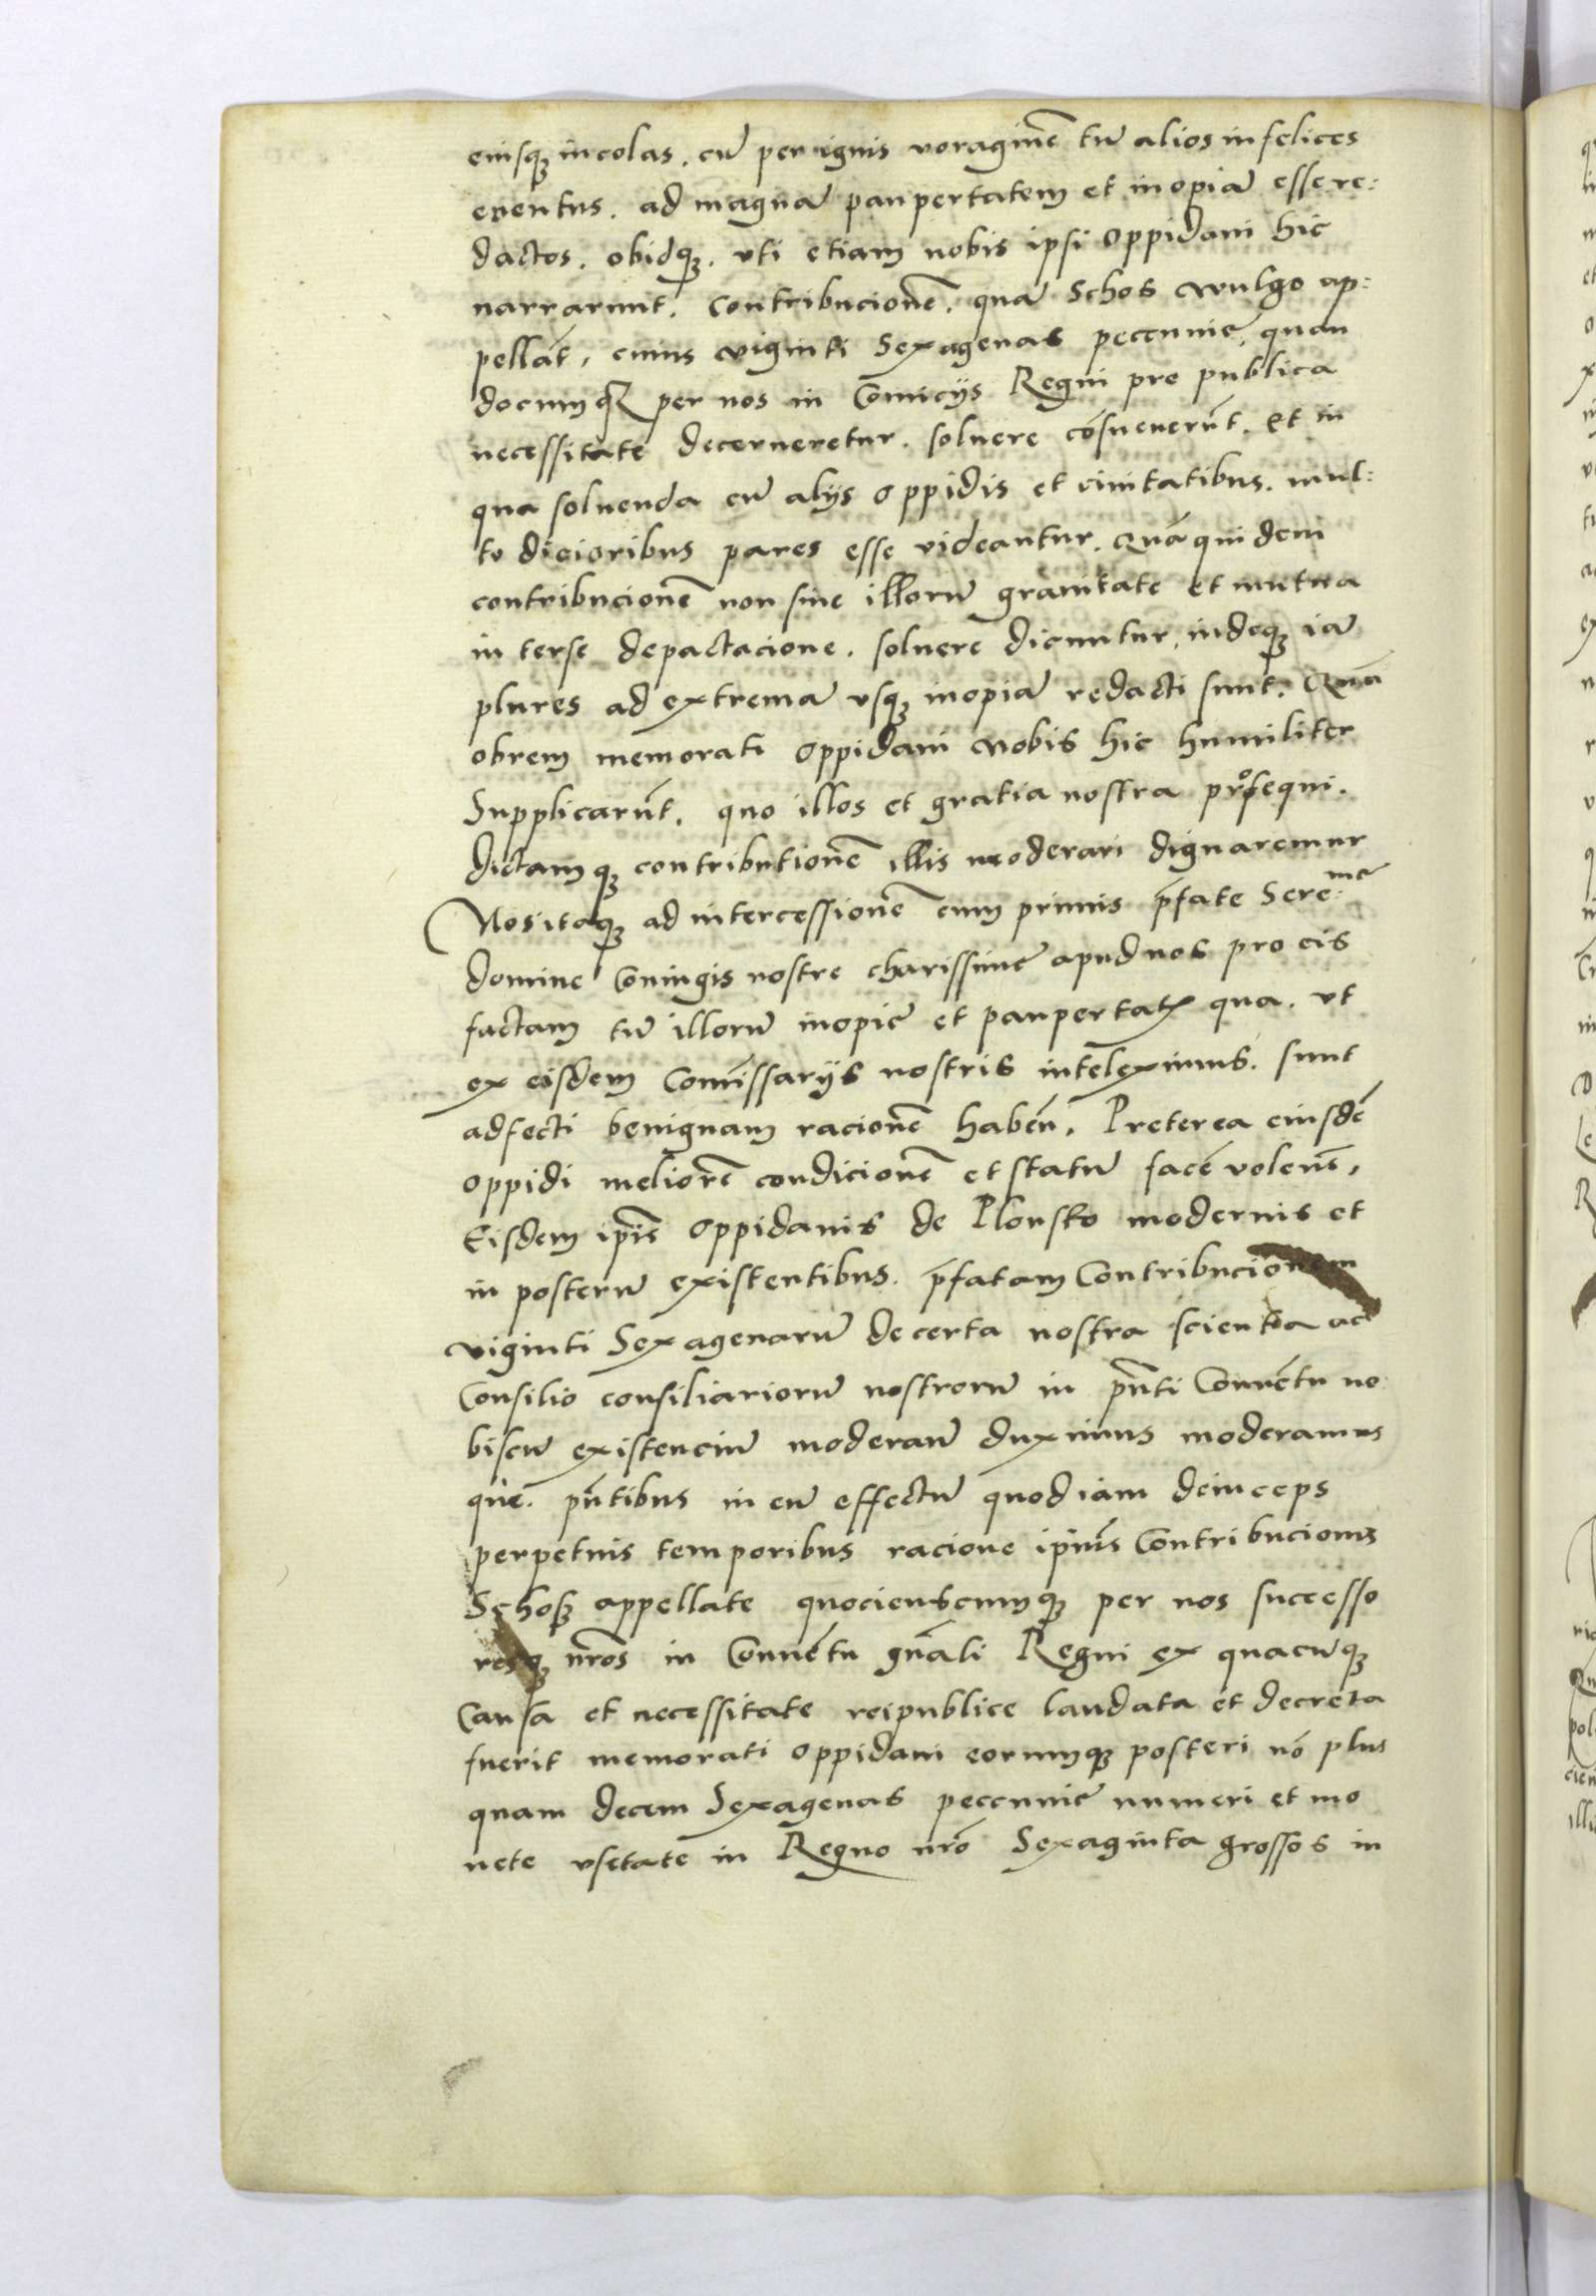 eiusq; incolas. cū per ignis voraginē tū alios infelices
euentus. ad magnā paupertatem et inopiā esse re:
dactos. obidq;. vti etiam nobis ipsi oppidani hic
narrarunt. Contribucionē. quā Schos wulgo ap:
pellāt, cuius viginti Sexagenas peccunie, quan
documq; per nos in Comicijs Regni pro publica
necessitate decerneretur. soluere cōsueuerūt. Et in
qua soluenda cū alijs oppidis et ciuitatibus. mul:
to dicioribus pares esse videantur. Quā quidem
contribucionē non sine illorū grauitate et mutua
inter se depactacione. soluere dicuntur, indeq; iā
plures ad extremā vsq; inopiā redacti sunt. Quā
obrem memorati oppidani nobis hic humiliter
Supplicarūt. quo illos et gratia nostra prosequi.
dictamq; contributionē illis moderari dignaremur
Nos itaq; ad intercessionē cum primis p̄fate Sere:me
domine Coniugis nostre charissime apud nos pro eis
factam tū illorū inopie et paupertat; qua. vt
ex eisdem Comīssarijs nostris intelleximus. sunt
adfecti benignam racionē habeñ. Preterea eiusdē
oppidi meliorē condicionē et statū facē volent̄,
Eisdem ip̄is oppidanis de Plonsko modernis et
in posterū existentibus. p̄fatam Contribucionem
viginti Sexagenarū de certa nostra scientia ac
Consilio consiliariorū nostrorū in p̄nti Conuētu no
biscū existenciū moderanā duximus moderamus
que. p̄ntibus in eū effectū quod iam deinceps
perpetuis temporibus racione ip̄ius Contribucionis
Schoss appellate quocienscumq; per nos successo
resq; nr̄os in Conuētu gn̄ali Regni ex quacūq;
Causa et necessitate reipublice laudata et decreta
fuerit memorati oppidani eorumq; posteri nō plus
quam decem Sexagenas peccunie numeri et mo
nete vsitate in Regno nr̄o Sexaginta grossos in